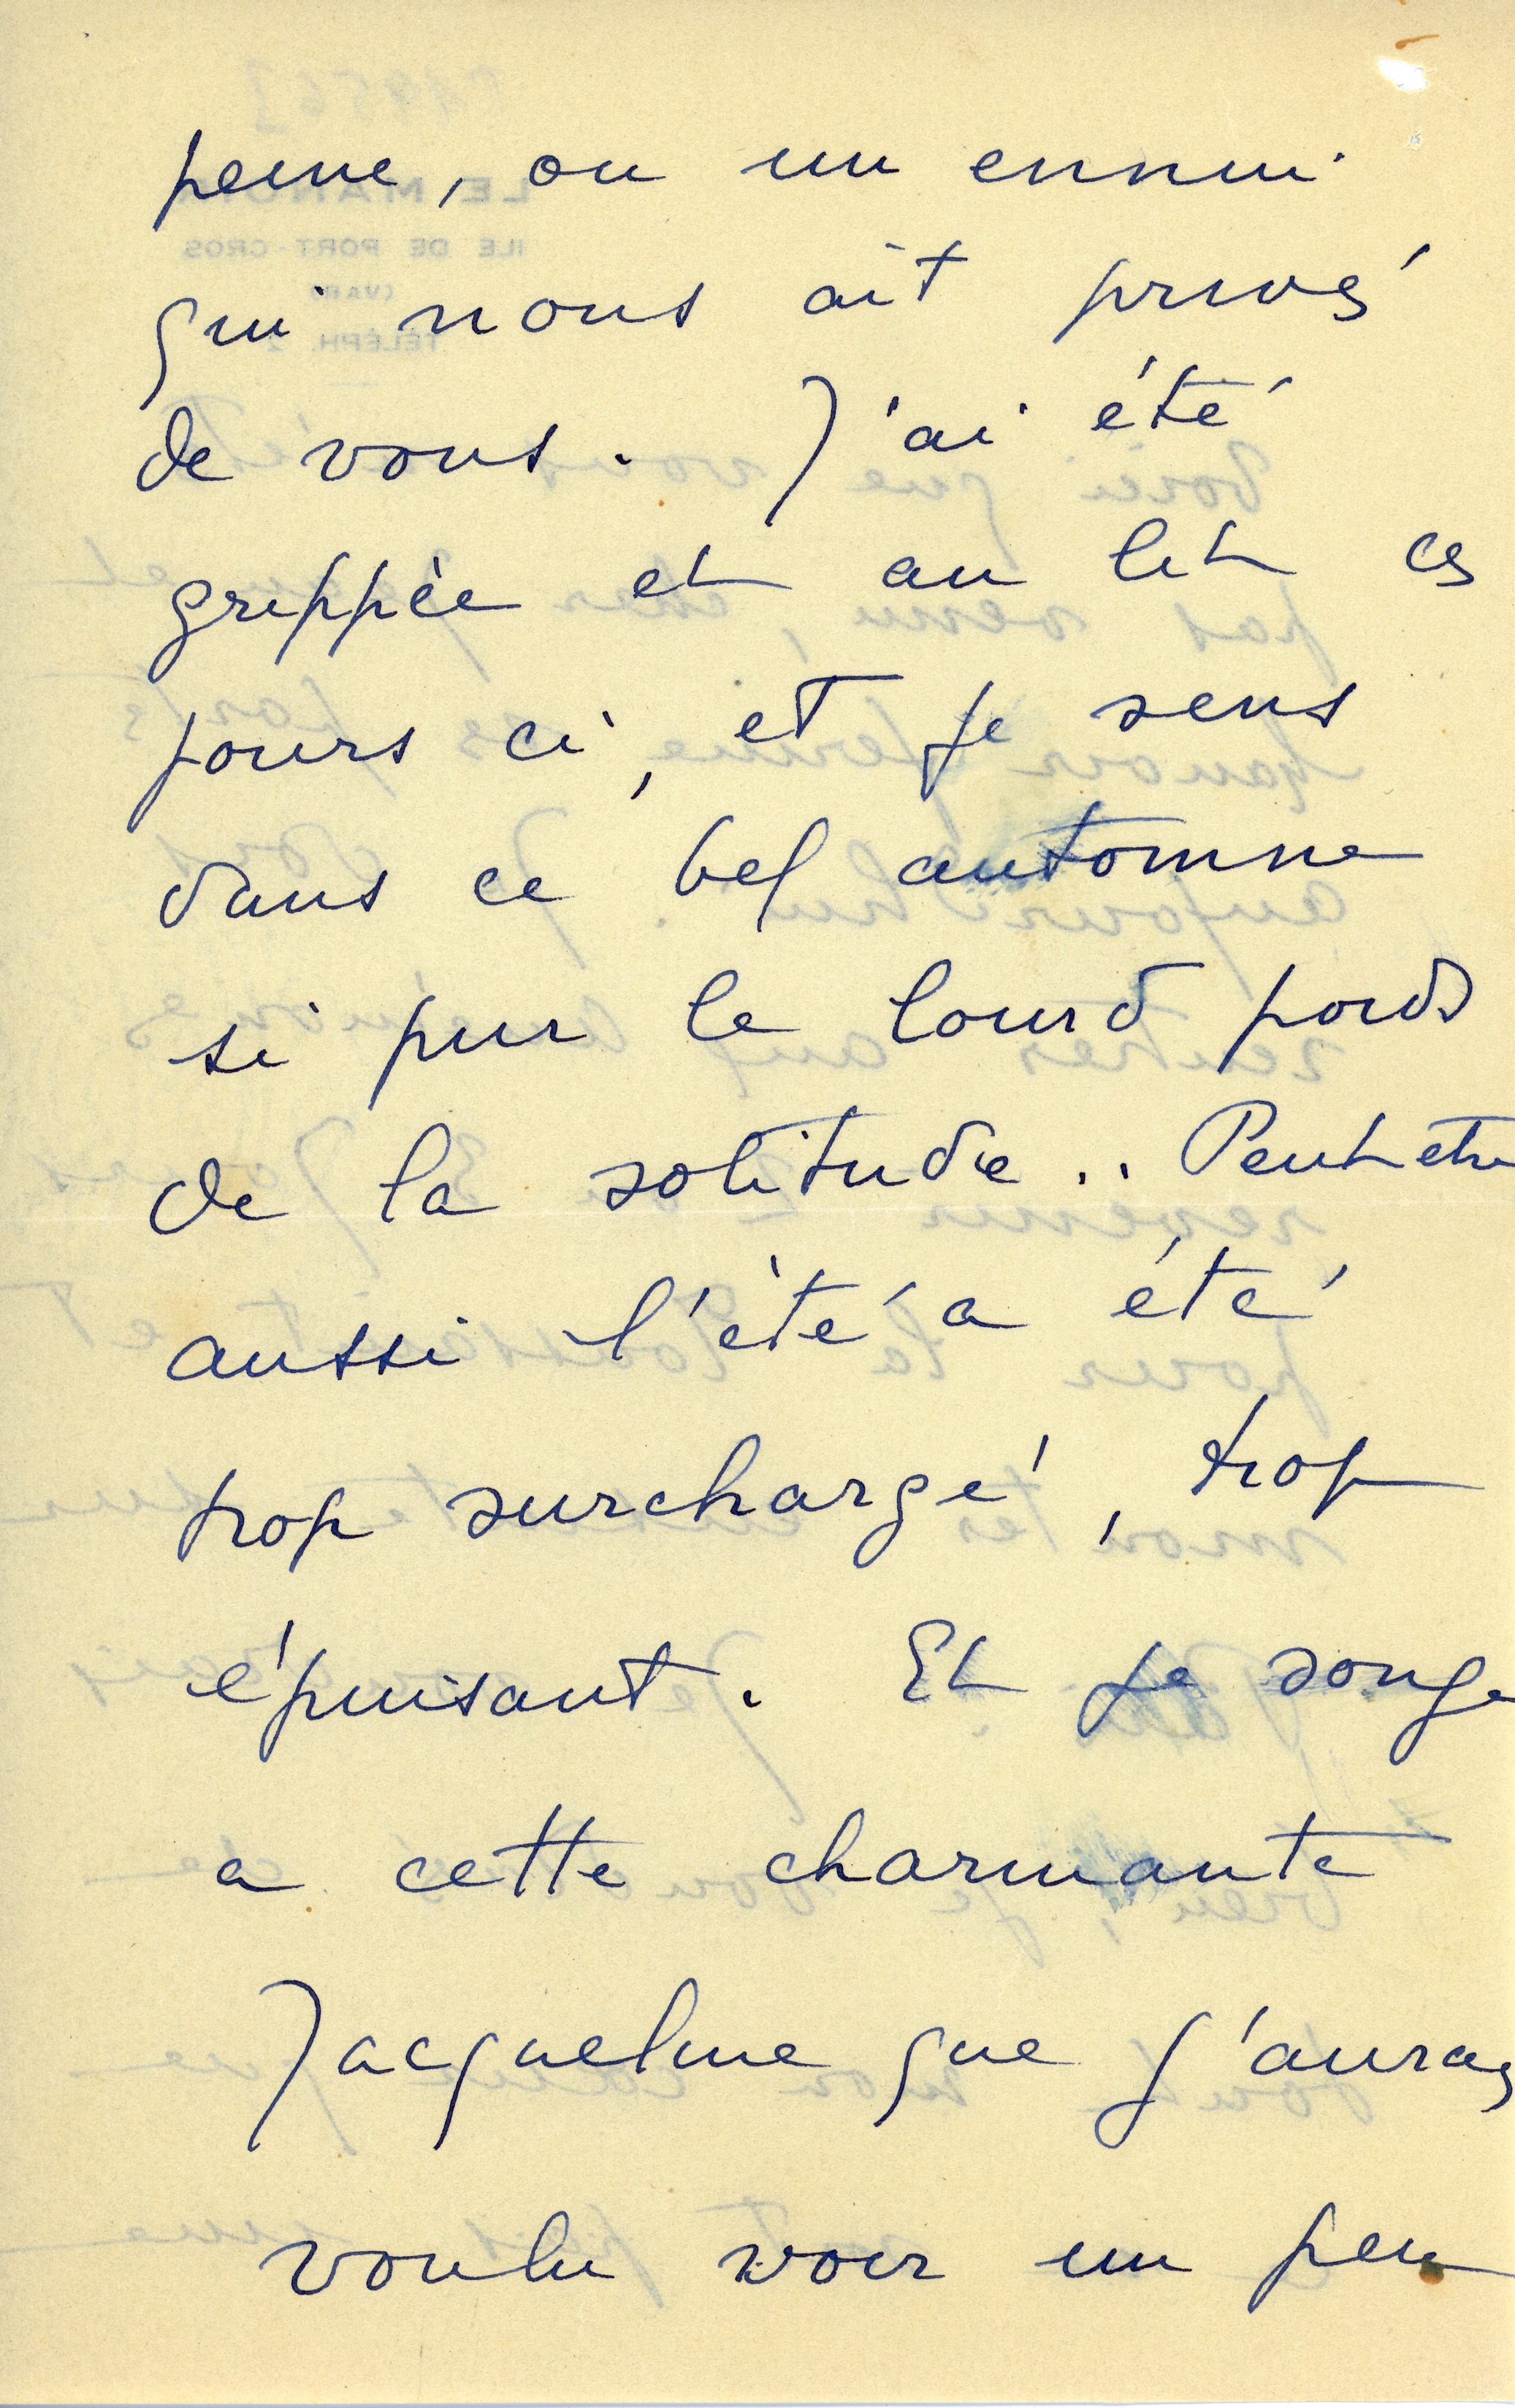 peine, ou un ennui
qui nous ait privés
de vous. J'ai été
grippée et au lit ces
jours ci, et je sens
dans ce bel automne
si pur le lourd poids
de la solitude.. Peut etre
aussi l'été a été
trop surchargé, trop
épuisant. Et je songe
a cette charmante
Jacqueline que j'aurais
voulu voir un peu